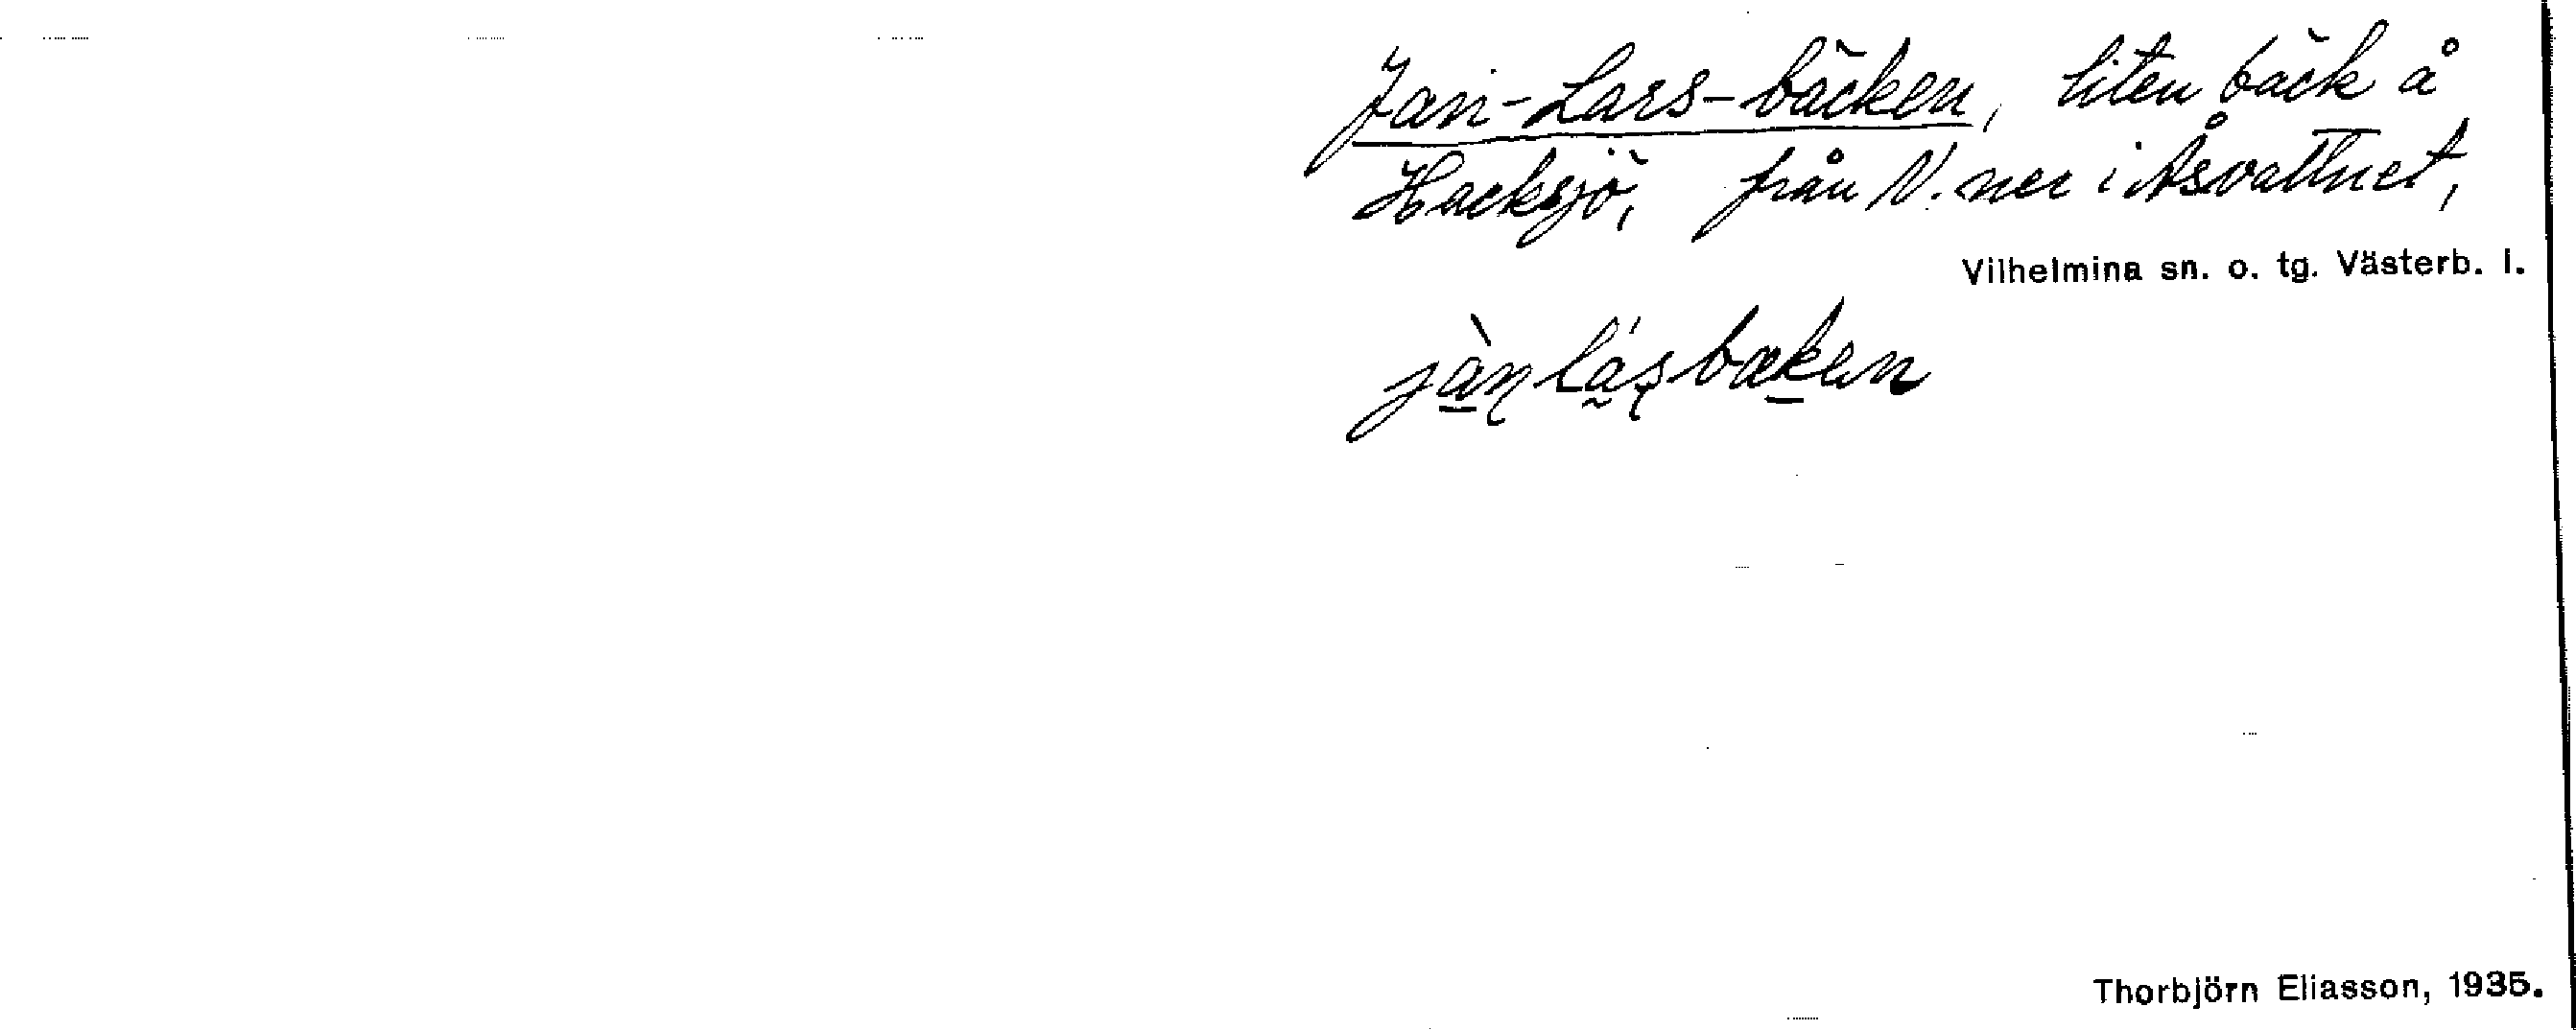 Jan-Lars-bäcken, liten bäck å
Hacksjö, från N. ner i Åsvattnet,
Vilhelmina sn. o. tg. Västerb. l.
jànlásbæken
Thorbjörn Eliasson, 1935.